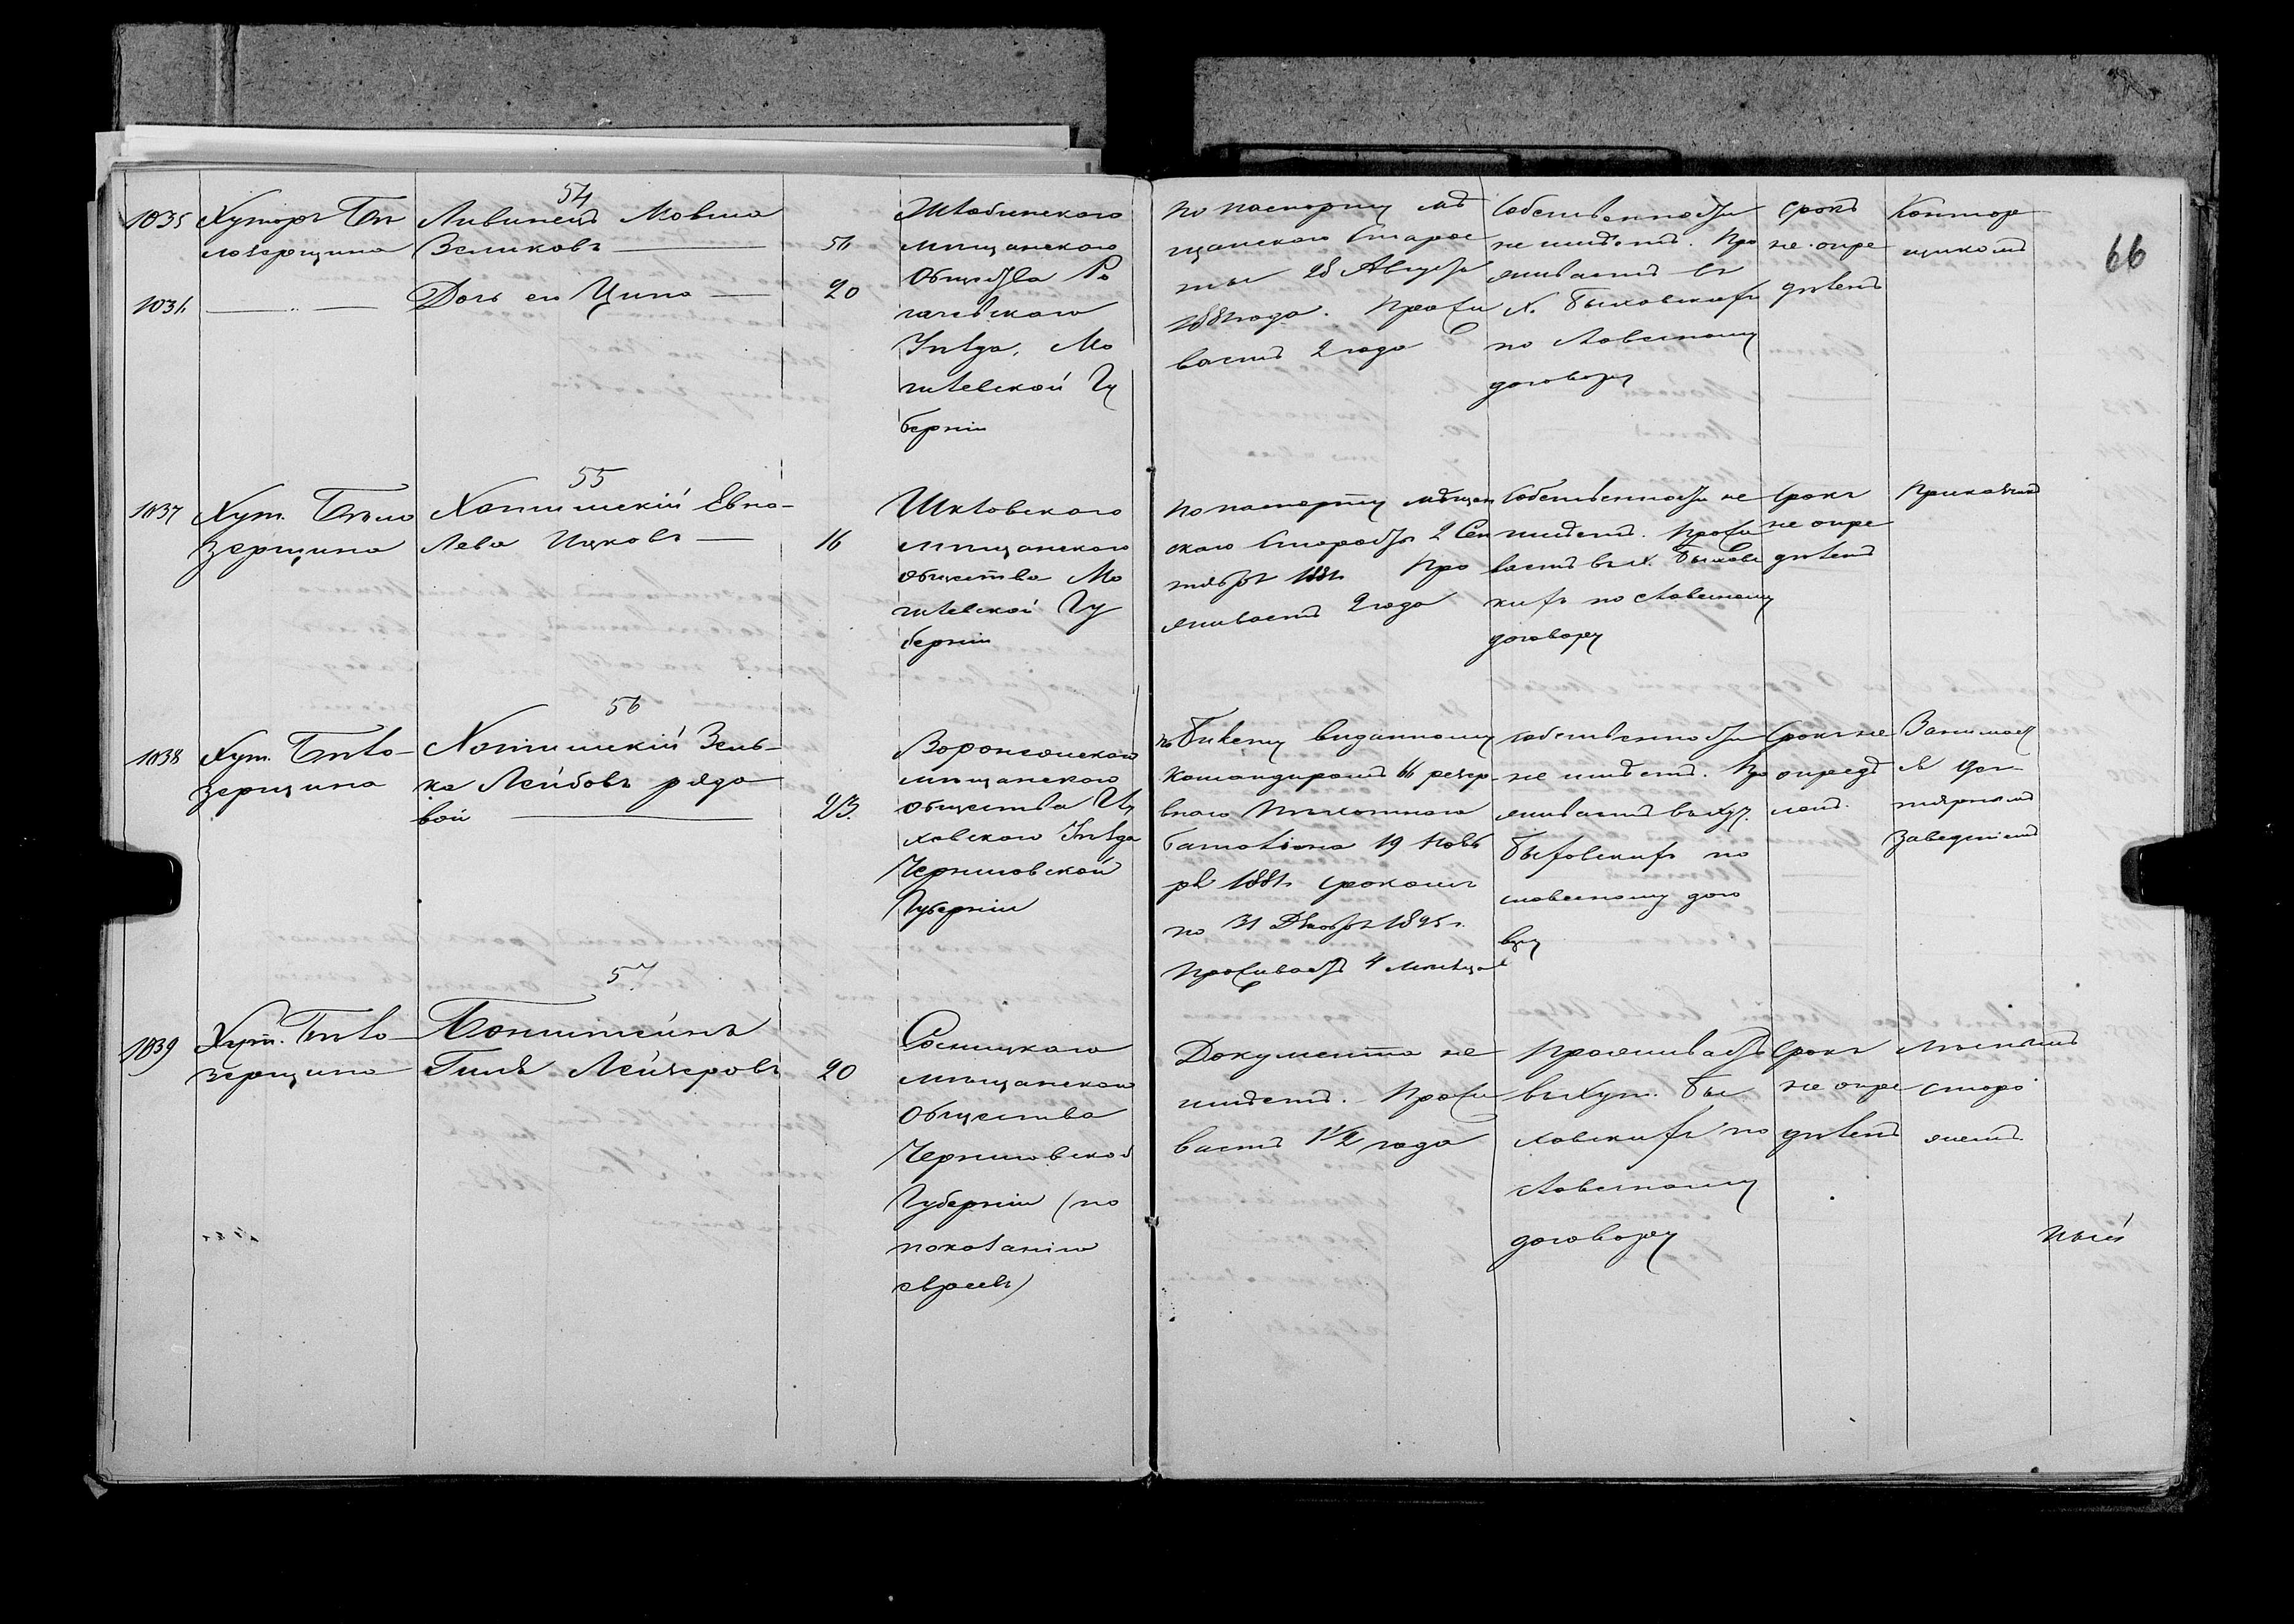 66
54
1035 Хуторъ Бѣ
лозерщина
Ливинецъ Мовша
Зеликовъ
1036 Дочь его Ципа
20
Жлобинскаго
мѣщанскаго
Общества Ро
гачевскаго
Уѣзда, Мо
гилевской Гу
берніи
По паспорту мѣ
щанскаго Старос
ты 28 Августа
года. Прожи
ваетъ 2 года
Собственности
не имѣетъ. Про
живаетъ въ
х. Быховскихъ
по словесному
договору
Срокъ
не опре
дѣленъ
Контор
щикомъ
55
1037 Хут. Бѣло
зерщина
Хотимскій Евно-
Лева Ицковъ
16
Шкловскаго
мѣщанскаго
общества Мо
гилевской Гу
берніи
По паспорту мѣщан
скаго Старосты 2 Сен
тября 1881 г. Про
живаетъ 2 года
Собственности не
имѣетъ. Прожи
ваетъ въ х. Быховс
кихъ по словесному
договору
Срокъ
не опре
дѣленъ
Прикащикъ
56
1038 Хут. Бѣло-
зерщина
Хотимскій Зель-
ка Лейбовъ рядо
вой
23.
мѣщанскаго
общества
Уѣзда
Черниговской
Губерніи
по Билету выданному
Командиромъ 66 резер-
внаго Пѣхотнаго
Баталіона 19 Нояб
ря 1881 г. срокомъ
по 31 Декабря 1895 г.
Проживаетъ 4 мѣсяца
собственности
не имѣетъ. Про
живаетъ въ хут.
Быховскихъ по
словесному дого
вору
Срокъ не
опредѣ
ленъ.
Занимает
ся
заведеніемъ
57
1039 Хут. Бѣло-
зерщина
Гиля Лейзеровъ
20
Сосницкаго
мѣщанскаго
Общества
Черниговской
Губерніи (по
показанію
евреевъ)
Документа не
имѣетъ. Прожи
ваетъ 1 1/2 года
Проживаетъ
въ Хут. Бы
ховскихъ по
словесному
договору
Срокъ
не опре
дѣленъ
Лѣснымъ
сторо
жемъ.